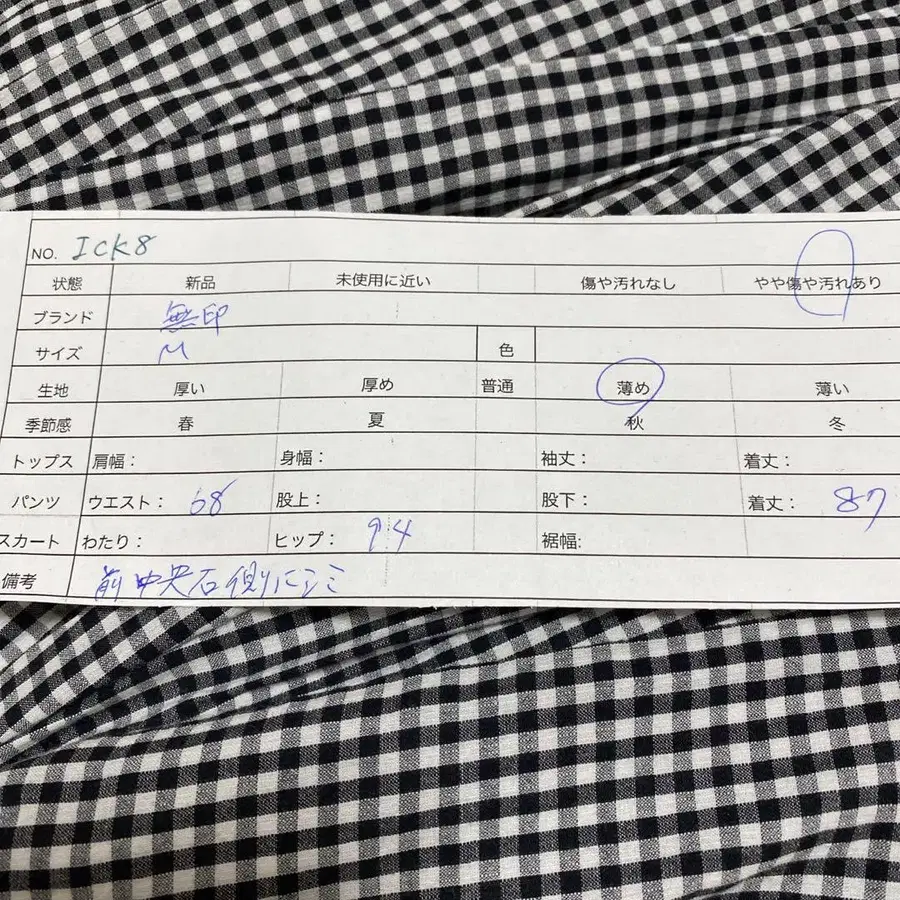 NO. Ick8
状態 新品 未使用に近い 傷や汚れなし やや傷や汚れあり
ブランド 無印
サイズ M 色
生地 厚い 厚め 普通 薄め 薄い
季節感 春 夏 秋 冬
トップス 肩幅： 身幅： 袖丈： 着丈：
パンツ ウエスト： 68 股上： 股下： 着丈： 87
スカート わたり： ヒップ： 94 裾幅:
備考 前中央右側にシミ